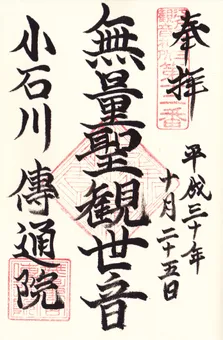 奉拝
平成三十年
十月二十五日
無量聖観世音
小石川 傳通院